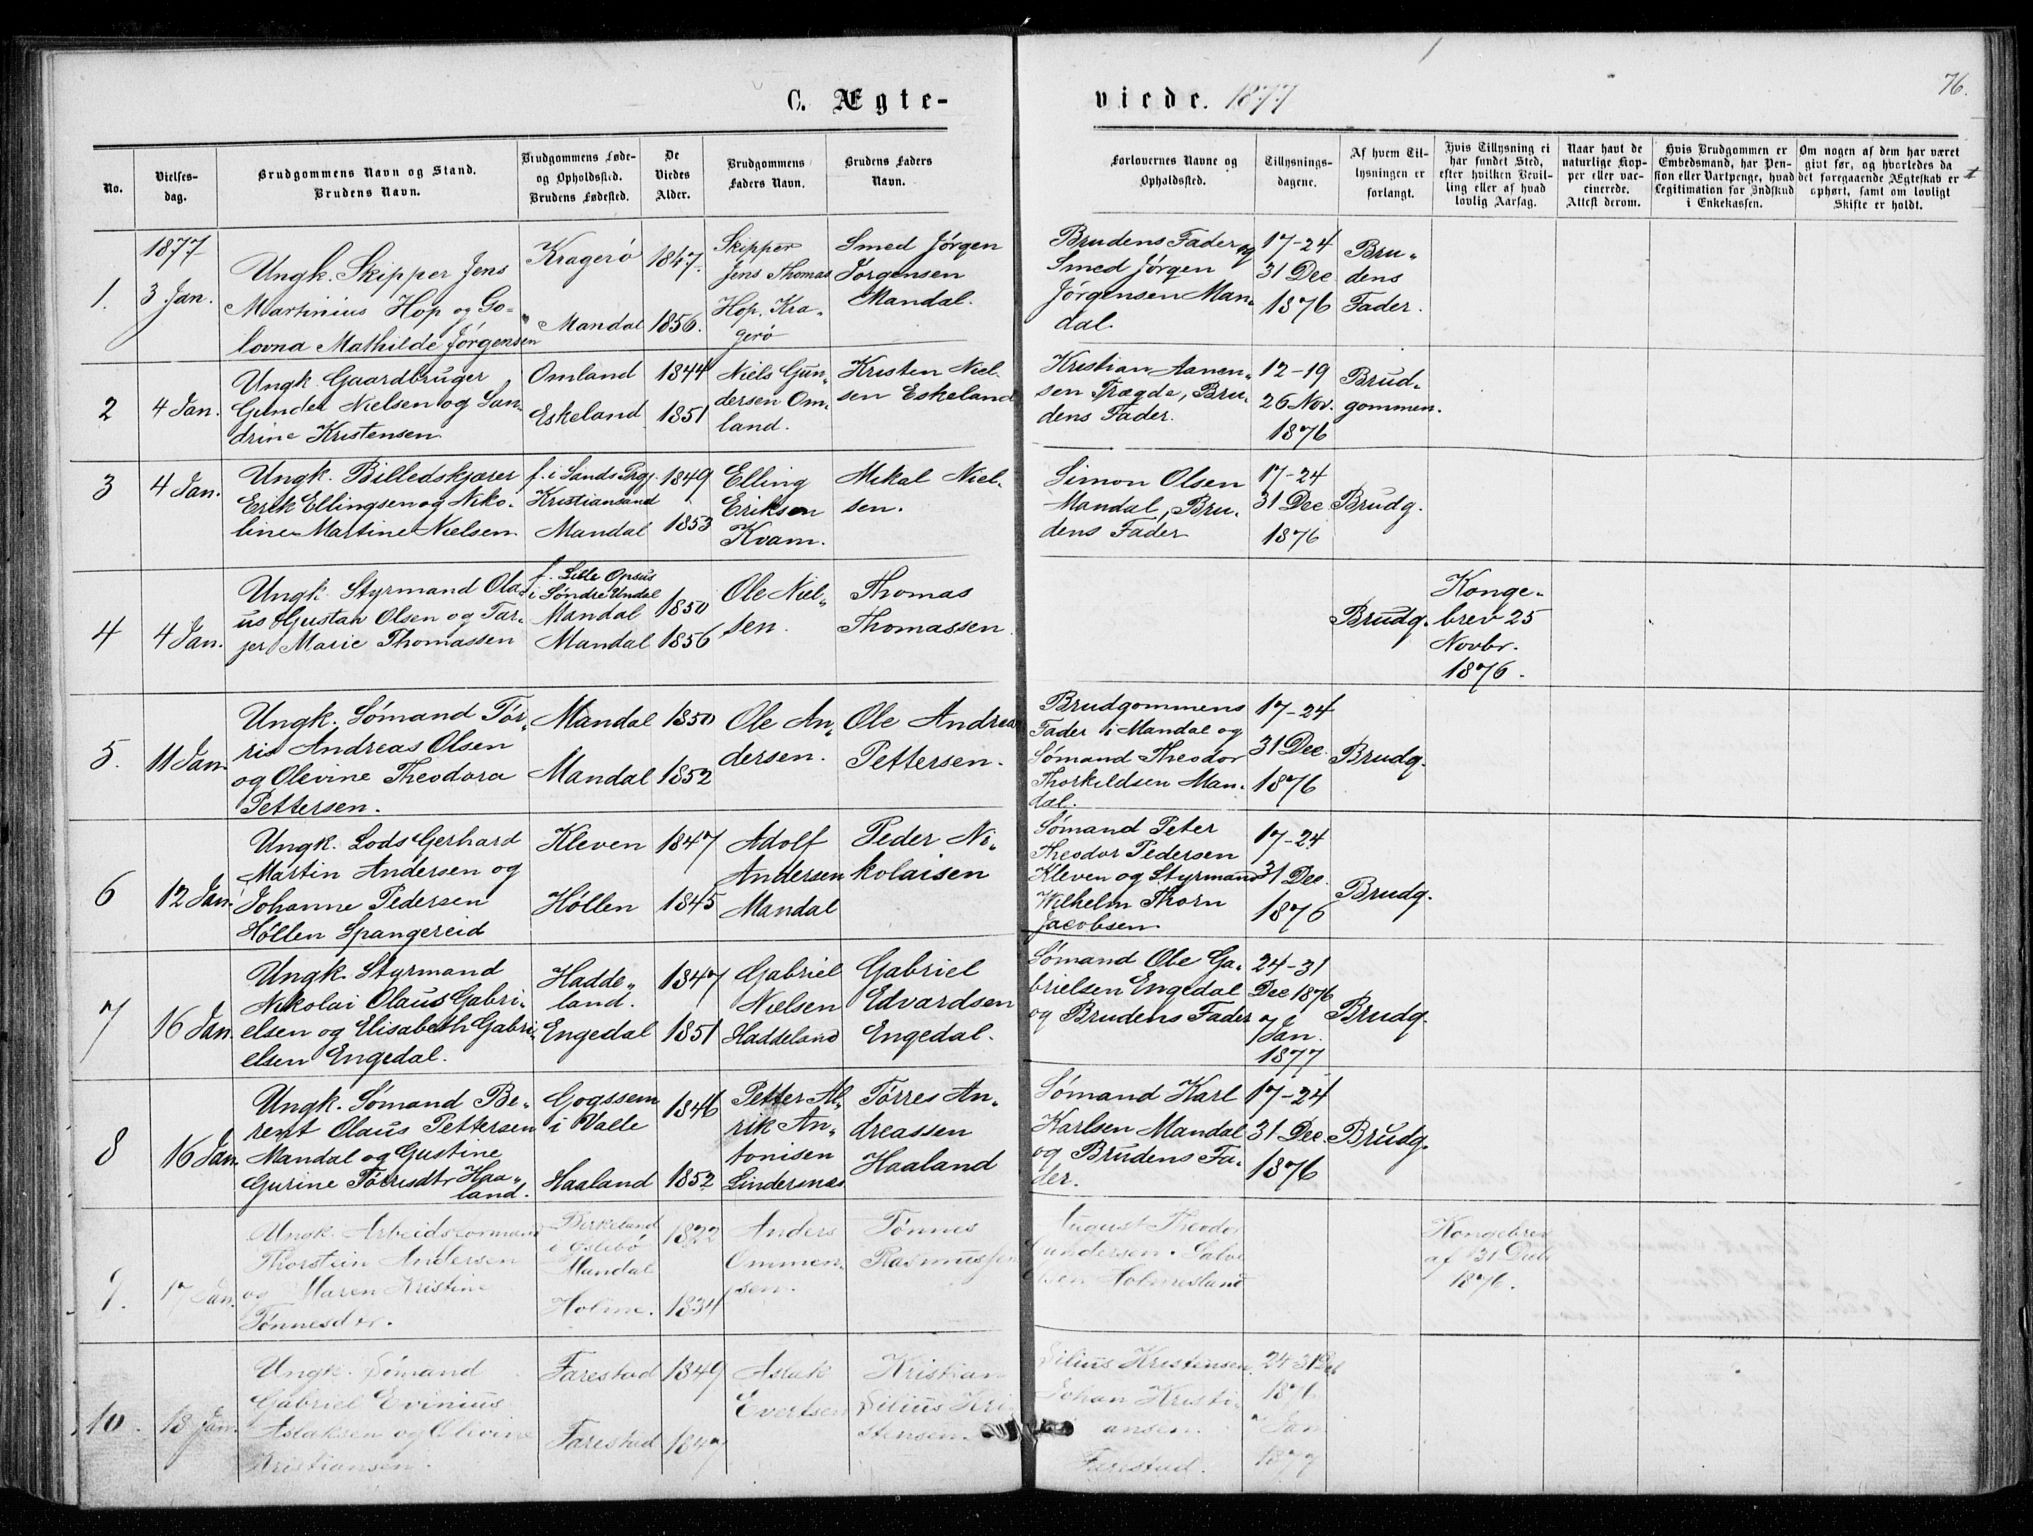 C. Ægte-
viede. 1877
76.
No.
Vielses-
dag.
Brudgommens Navn og Stand.
Brudens Navn.
Brudgommens Føde-
og Opholdssted.
Brudens Fødested.
De
Viedes
Alder.
Brudgommens
Faders Navn.
Brudens Faders
Navn.
Forlovernes Navne og
Opholdssted.
Tillysnings-
dagene.
Af hvem Til-
lysningen er
forlangt.
Hvis Tillysning ei
har fundet Sted,
efter hvilken Bevil-
ling eller af hvad
lovlig Aarsag.
Naar havt de
naturlige Kop-
per eller vac-
cinerede.
Attest derom.
Hvis Brudgommen er
Embedsmand, har Pen-
sion eller Vartpenge, hvad
Legitimation for Indskud
i Enkekassen.
Om nogen af dem har været
givt før, og hvorledes da
det foregaaende Ægteskab er
ophørt, samt om lovligt
Skifte er holdt.
1877
1.
3 Jan.
Ungk. Skipper Jens
Martinius Hop og Go-
lovna Mathilde Jörgensen
Kragerö
Mandal
1847.
1856.
Skipper
Jens Thomas
Hop. Kra-
gerö
Smed Jörgen
Jörgensen
Mandal.
Brudens Fader og
Smed Jörgen
Jörgensen Man-
dal.
17-24
31 Dec
1876
Bru-
dens
Fader.
2
4 Jan.
Ungk. Gaardbruger
Gunder Nielsen og San-
drine Kristensen
Omland
Eskeland
1844
1851
Niels Gun-
dersen Om-
land.
Kristen Niel-
sen Eskeland
Kristian Aanen-
sen Trægde, Bru-
dens Fader.
12-19
26 Nov.
1876
Brud-
gommen.
3
4 Jan.
Ungk. Billedskjærer
Erik Ellingsen og Niko-
line Martine Nielsen
f. i Sands Prgj.
Kristiansand
Mandal
1849
1853
Elling
Eriksen
Kvam.
Mikal Niel-
sen.
Simon Olsen
Mandal, Bru-
dens Fader
17-24
31 Dec
1876
Brudg.
4
4 Jan.
Ungk. Styrmand Ola-
us Gustav Olsen og Tar-
jer Marie Thomassen
f. Lille Opsus
i Söndre Undal
Mandal
Mandal
1850
1856
Ole Niel-
sen.
Thomas
Thomassen
Brudg.
Konge-
brev 25
Novbr.
1876.
5.
11 Jan.
Ungk. Sömand Tör-
ris Andreas Olsen
og Olevine Theodora
Pettersen.
Mandal
Mandal
1850
1852
Ole An-
dersen.
Ole Andreas
Pettersen.
Brudgommens
Fader i Mandal og
Sömand Theodor
Thorkildsen Man-
dal.
17-24
31 Dec.
1876
Brudg.
6
12 Jan.
Ungk. Lods Gerhard
Martin Andersen og
Johanne Pedersen
Höllen Spangereid
Kleven
Höllen
1847
1845
Adolf
Andersen
Mandal
Peder Ni-
kolaisen
Sömand Peter
Theodor Pedersen
Kleven og Styrmand
Wilhelm Thorn
Jacobsen.
17-24
31 Dec.
1876
Brudg.
7
16 Jan
Ungk. Styrmand
Nikolai Olaus Gabri-
elsen og Elisabeth Gabri-
elsen Engedal.
Hadde-
land.
Engedal
1847
1851
Gabriel
Nielsen
Haddeland
Gabriel
Edvardsen
Engedal.
Sömand Ole Ga-
brielsen Engedal
og Brudens Fader
24-31
Dec 1876
7
Jan.
1877
Brudg.
8
16 Jan.
Ungk. Sömand Be-
rent Olaus Pettersen
Mandal og Gustine
Gurine Törrisdtr Haa-
land.
Gogssem
i Valle
Haaland
1846
1852
Petter Al-
rik An-
tonisen
Lindersnæs
Törres An-
dreassen
Haaland
Sömand Karl
Karlsen Mandal
og Brudens Fa-
der.
17-24
31 Dec
1876
Brudg.
9.
17 Jan.
Ungk. Arbeidsformand
Thorstein Andersen
og Maren Kristine
Tönnesdtr.
Birkeland
i Öslebö
Mandal
Holme.
1822
1834
Anders
Ommen-
sen.
Tönnes
Rasmussen
August Theodor
Gundersen. Salve
Olsen Holmesland
Kongebrev
af 31 Decb
1876.
10.
18 Jan.
Ungk. Sömand
Gabriel Evinius
Aslaksen og Olevine
Kristiansen.
Farestad
Farestad
1849
1847
Aslak
Evertsen
Kristian
Silius Kri-
stensen.
Silius Kristensen.
Johan Kristi-
ansen.
Farestad.
24 31 Dec
1876
7 Jan
1877